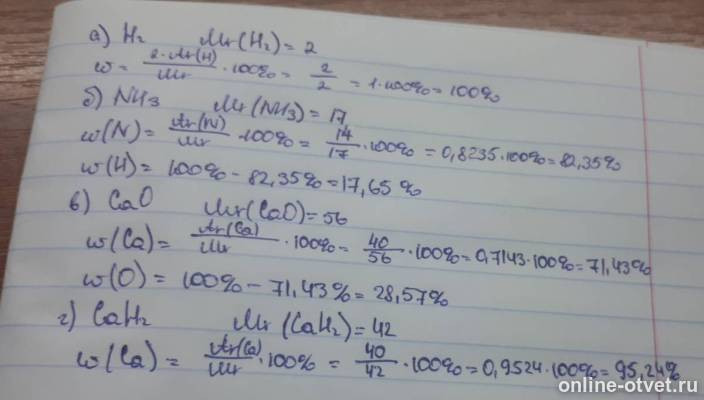 а) H₂ Mr(H₂)=2
w= 2·Ar(H)/Mr ·100%= 2/2 = 1·100%=100%
б) NH₃ Mr(NH₃)=17
w(N)= Ar(N)/Mr ·100%= 14/17 ·100%=0,8235·100%=82,35%
w(H)= 100%-82,35%=17,65%
в) CaO Mr(CaO)=56
w(Ca)= Ar(Ca)/Mr ·100%= 40/56 ·100%=0,7143·100%=71,43%
w(O)= 100%-71,43%=28,57%
г) CaH₂ Mr(CaH₂)=42
w(Ca)= Ar(Ca)/Mr ·100% = 40/42 ·100%=0,9524·100%=95,24%
online-otvet.ru